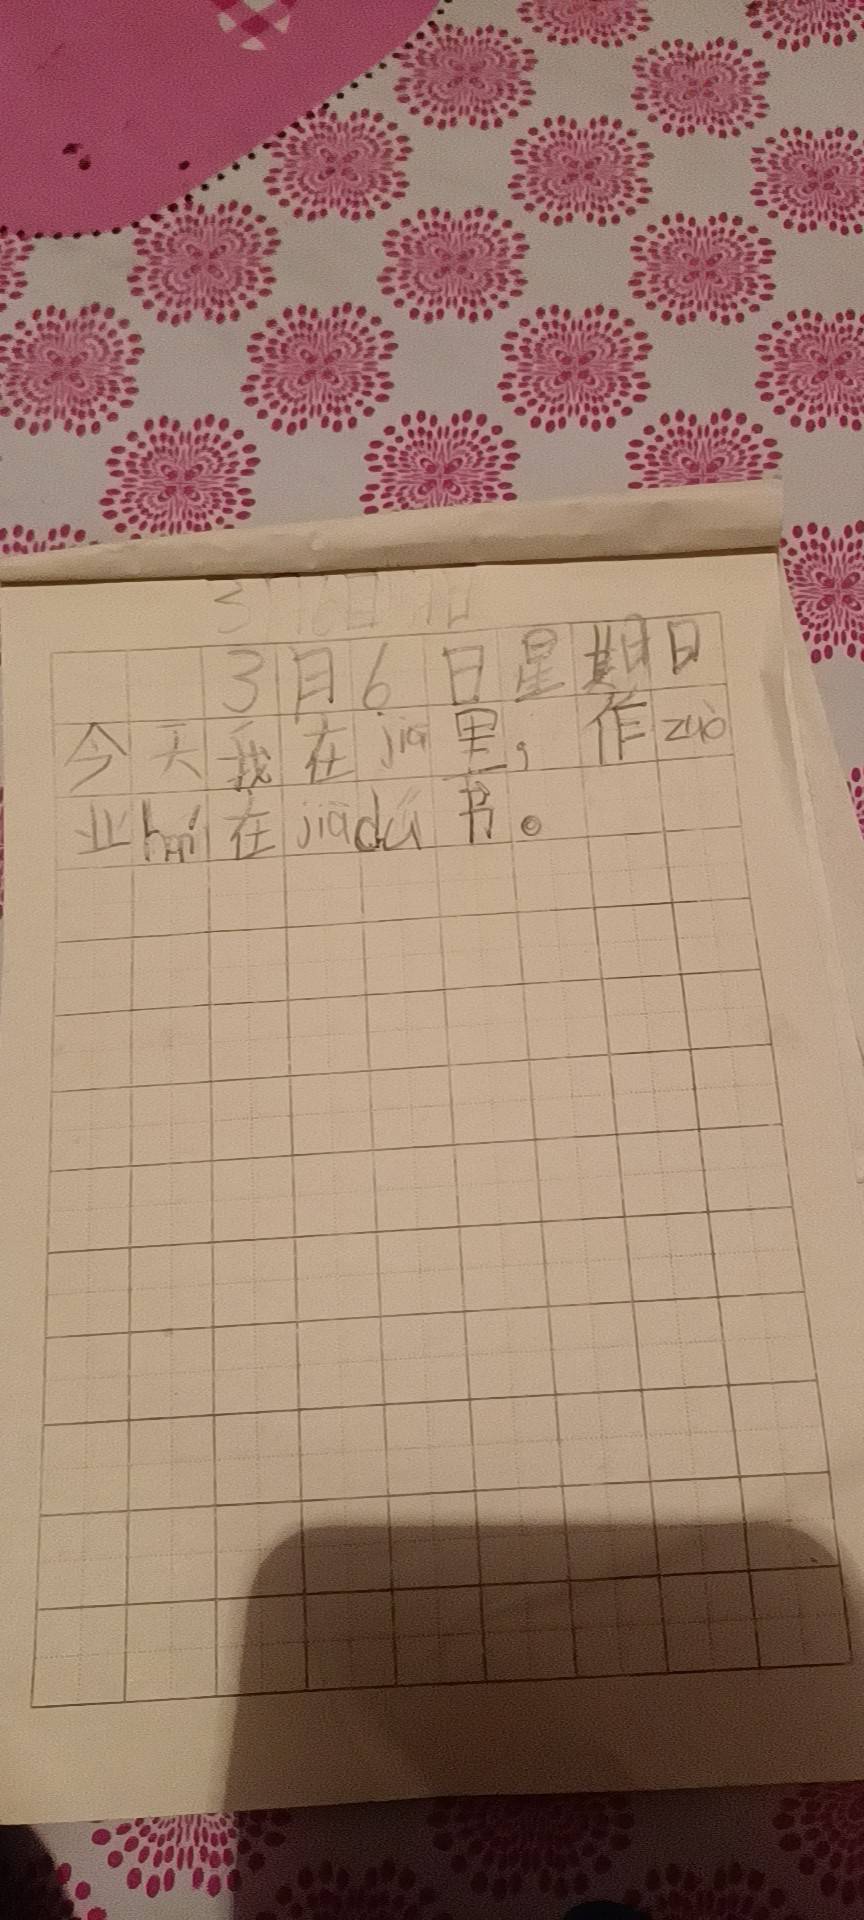 3月6日星期日
今天我在jiā里，作zuò
业hái在jiādú书。